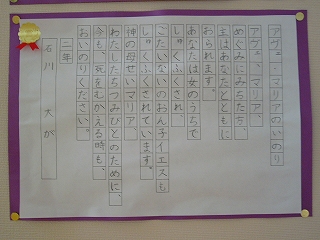 アヴェ・マリアのいのり
アヴェ、マリア、
めぐみにみちた方、
主はあなたとともに
おられます。
あなたは女のうちで
しゅくふくされ、
ごたいないのおん子イエスも
しゅくふくされています。
神の母せいマリア、
わたしたちつみびとのために、
今も、死をむかえる時も、
おいのりください。
二年
石川 大が